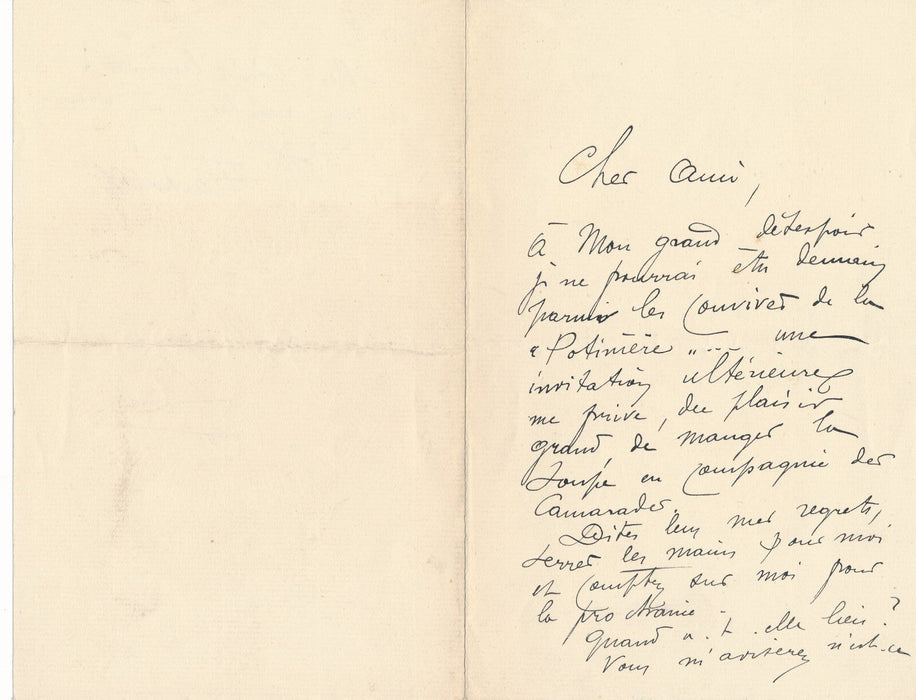 Cher ami,
à mon grand désespoir
je ne pourrai être demain
parmi les convives de la
"Potinière"... une
invitation ultérieure
me prive, du plaisir
grand, de manger la
soupe en compagnie des
Camarades.
Dites leur mes regrets,
serrez les mains pour moi
et comptez sur moi pour
la prochaine.
Quand a-t-elle lieu?
Vous m'aviserez n'est-ce